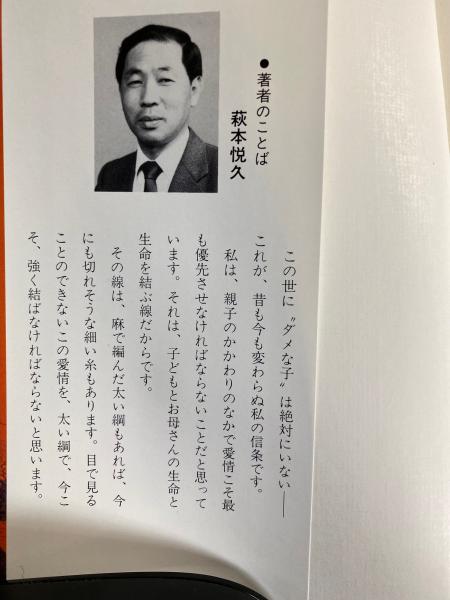 ●著者のことば
萩本悦久
この世に〝ダメな子〟は絶対にいない――
これが、昔も今も変わらぬ私の信条です。
私は、親子のかかわりのなかで愛情こそ最
も優先させなければならないことだと思って
います。それは、子どもとお母さんの生命と
生命を結ぶ線だからです。
その線は、麻で編んだ太い綱もあれば、今
にも切れそうな細い糸もあります。目で見る
ことのできないこの愛情を、太い綱で、今こ
そ、強く結ばなければならないと思います。